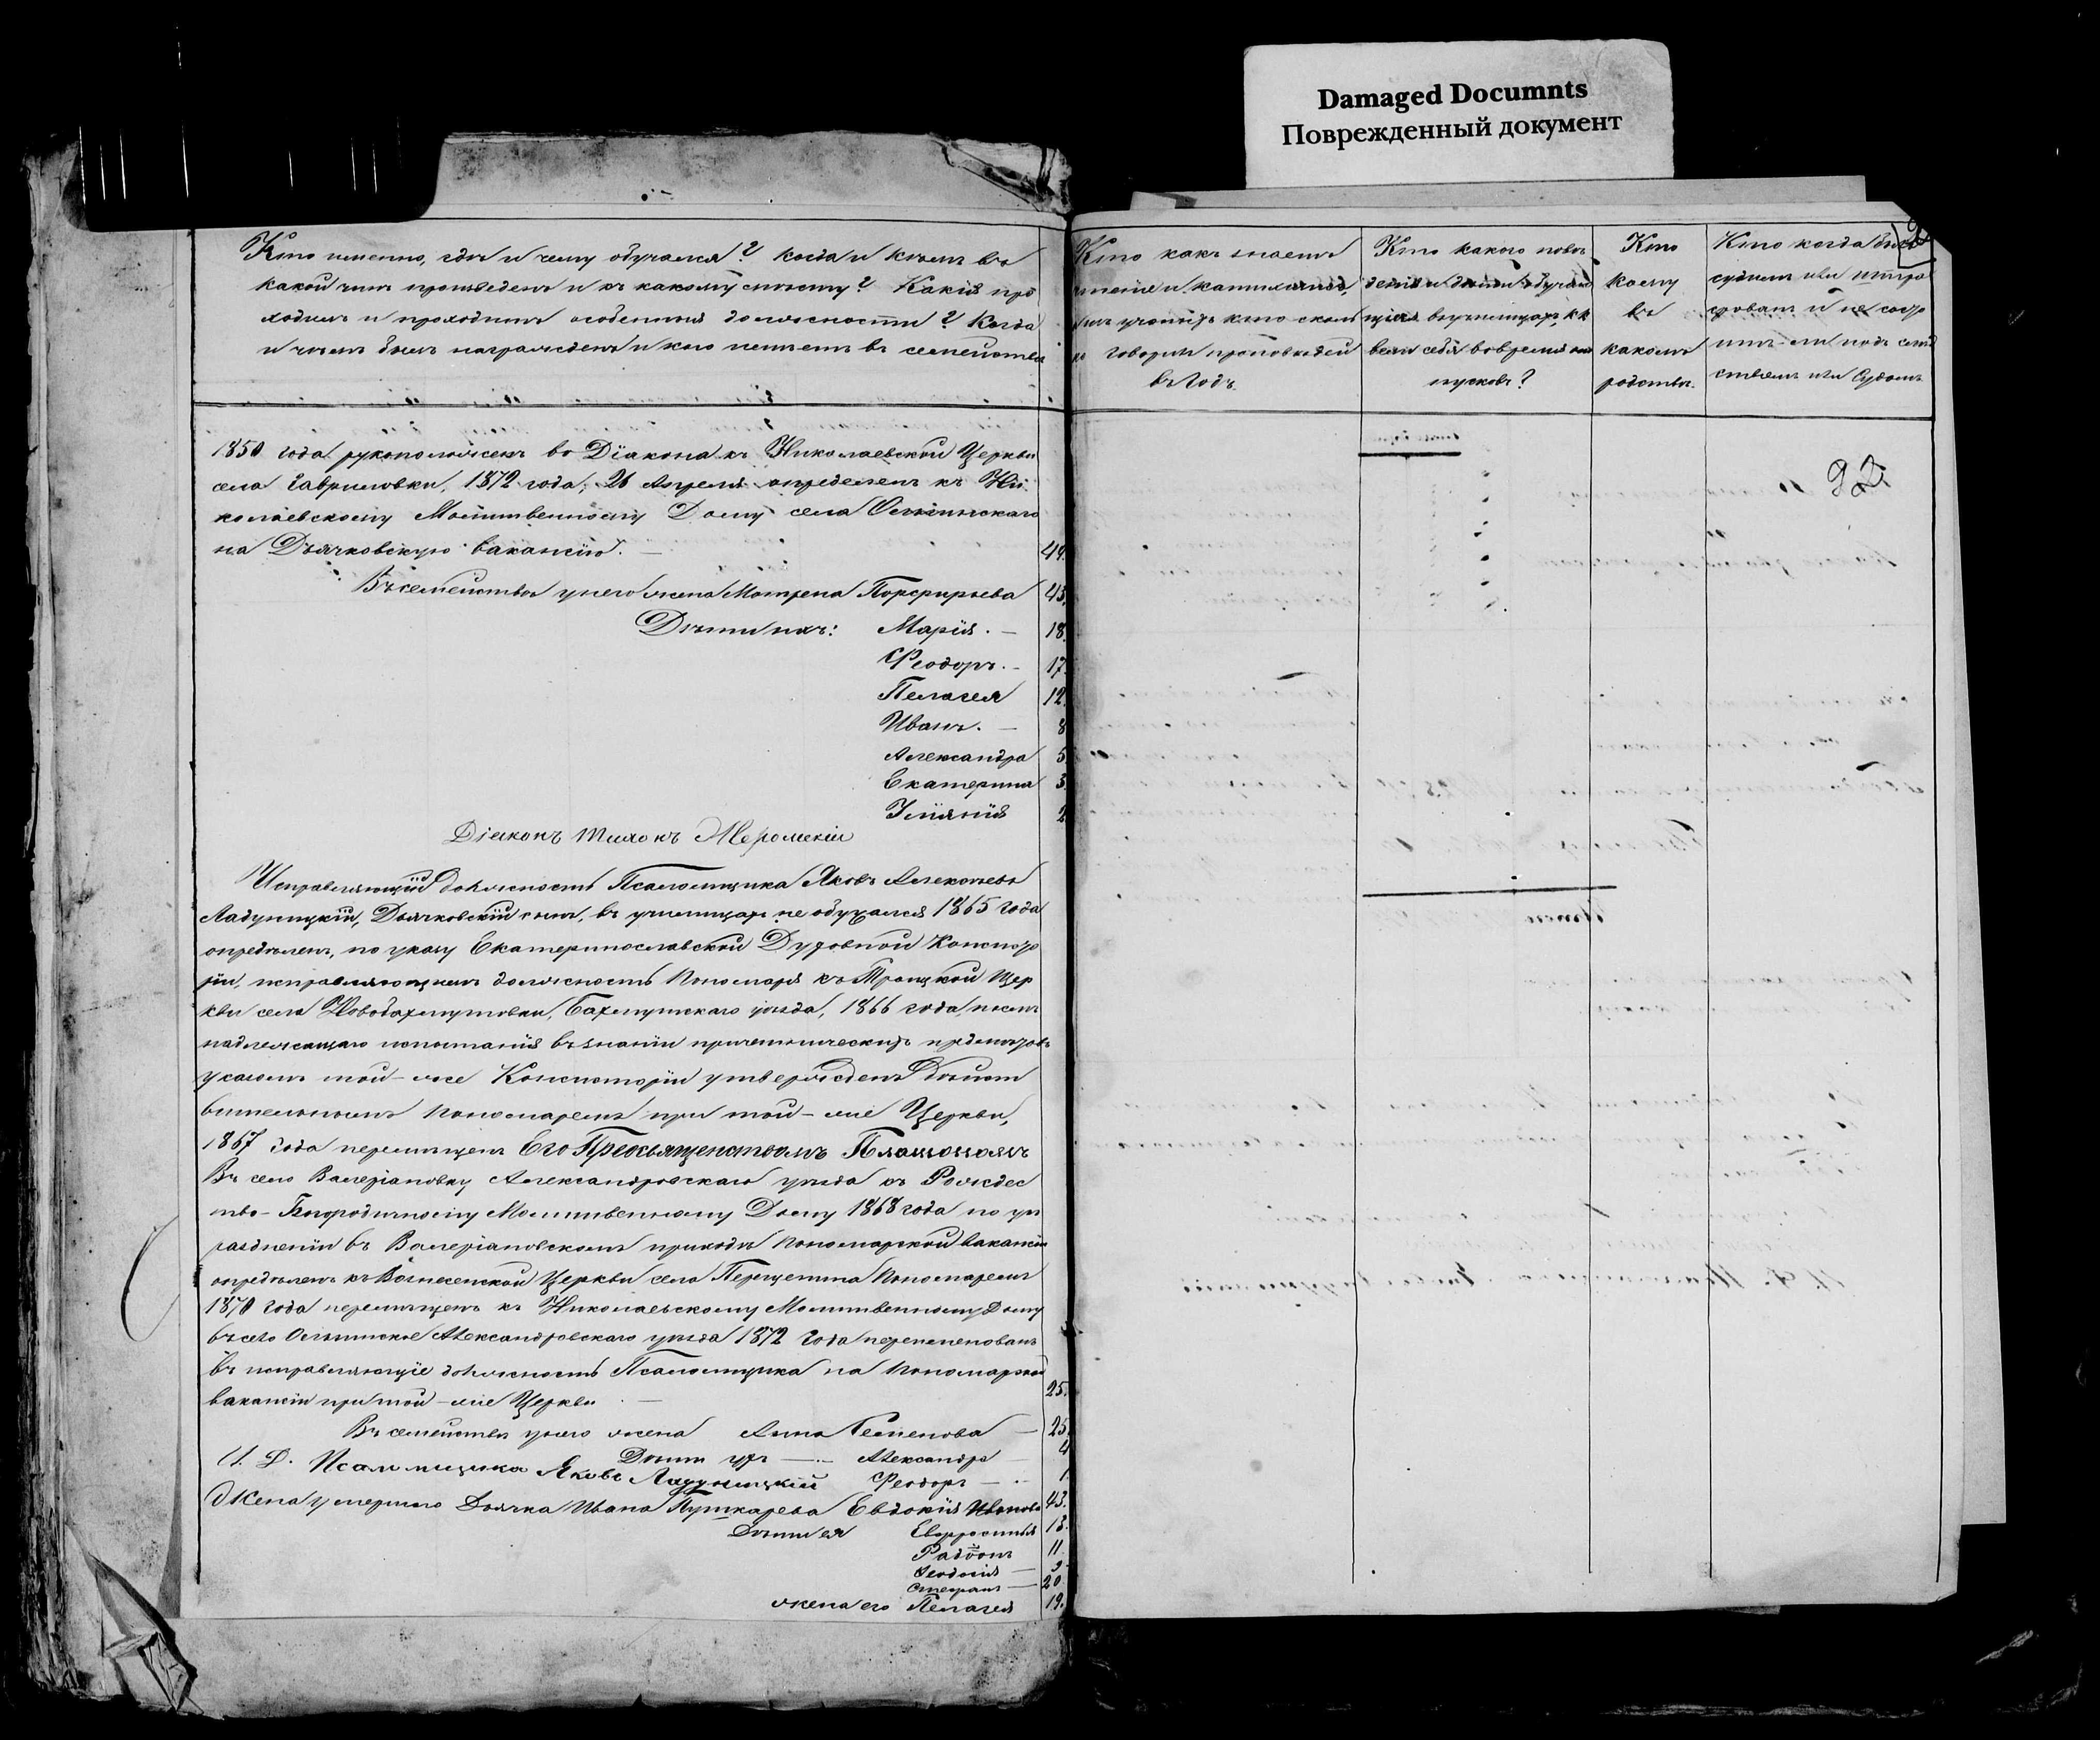 Damaged Documnts
Поврежденный документ
Кто именно, гдѣ и чему обучался? когда и кѣмъ въ
какой чинъ произведенъ и къ какому мѣсту? Какія про
ходилъ и проходитъ особенныя должности? Когда
и чѣмъ былъ награжденъ и кого имѣетъ въ семействѣ
1850 года рукоположенъ во Діакона къ Николаевской Церкви
села Гавриловки, 1872 года, 26 Апреля определенъ къ Ни
колаевскому Молитвенному Дому села
на Дьячковскую вакансію. — 49.
Въ семействѣ у него жена Матрена Порфирьева 45.
Дѣти ихъ: Марія. — 18.
Ѳеодоръ. — 17.
Пелагея 12.
Иванъ. — 8
Александра 5.
Екатерина 3.
2
Діаконъ
Исправляющій должность Псаломщика Яковъ Алексѣевъ
Ладушицкій, Дьячковскій сынъ, въ училищахъ не обучался 1865 года
опредѣленъ, по указу Екатеринославской Духовной Консисто
ріи, исправляющимъ должность Пономаря къ Троицкой Цер
кви села Новобахмутовки, Бахмутскаго уѣзда, 1866 года, послѣ
надлежащаго испытанія въ знаніи причетническихъ предметовъ
указомъ той-же Консисторіи утвержденъ дѣйст
вительнымъ Пономаремъ при той-же Церкви,
1867 года перемѣщенъ Его Преосвященствомъ Платономъ
Въ село Валеріановку Александровскаго уѣзда къ Рождес
тво-Богородичному Молитвенному Дому 1868 года по уп
раздненіи въ Валеріановскомъ приходѣ Пономарской вакансіи
опредѣленъ къ Вознесенской Церкви села Перещепина Пономаремъ
1870 года перемѣщенъ къ Николаевскому Молитвенному Дому
въ село Александровскаго уѣзда 1872 года переименованъ
въ исправляющіе должность Псаломщика на Пономарской
вакансіи при той-же Церкви — 25.
Въ семействѣ у него жена Анна Семенова — 25.
Дѣти ихъ — Александръ 4
И. Д. Псаломщика Яковъ Ладушицкій Ѳеодоръ — 1.
Жена умершаго Дьячка Ивана Пушкарева Евдокія Иванова 43.
Дѣти ея Евфросинія 13.
Родіонъ 11.
Ѳеодосія —
Стефанъ — 20
жена его Пелагея 19.
Кто какъ знаетъ
чтеніе и катихизисъ,
кто сколь
ко говорилъ проповѣдей
въ годъ.
Кто какого пове
денія и дѣти обучаю
щіеся въ училищахъ, как
вели себя во время от
пусковъ?
Кто
кому
въ
какомъ
родствѣ.
Кто когда былъ
судимъ или штра
фованъ и не состо
итъ-ли подъ слѣд
ствіемъ или Судомъ
92